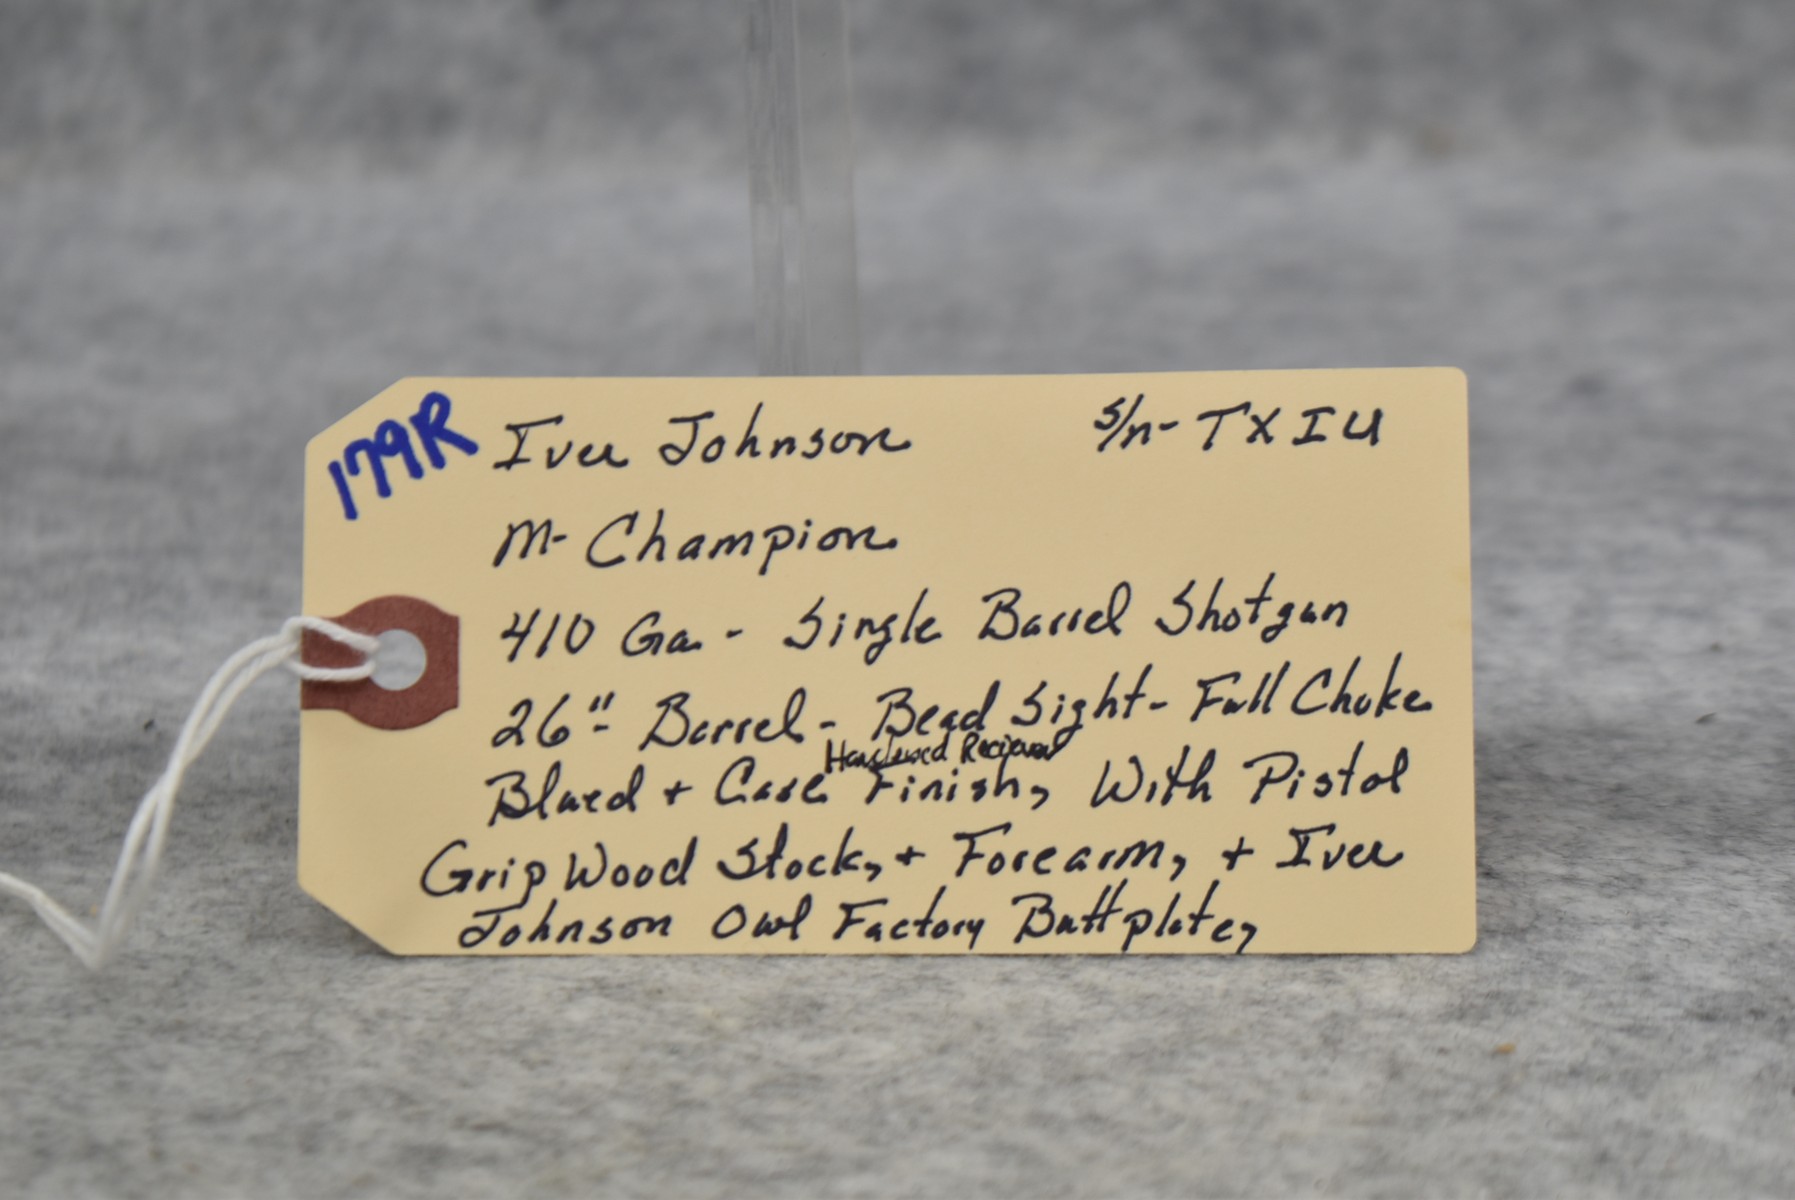 179R
Iver Johnson S/n- TXIU
M- Champion
410 Ga. - Single Barrel Shotgun
26"- Barrel - Bead Sight - Full Choke
Hardened Reciever
Blued + Case Finish, With Pistol
Grip Wood Stock, + Forearm, + Iver
Johnson Owl Factory Buttplate,